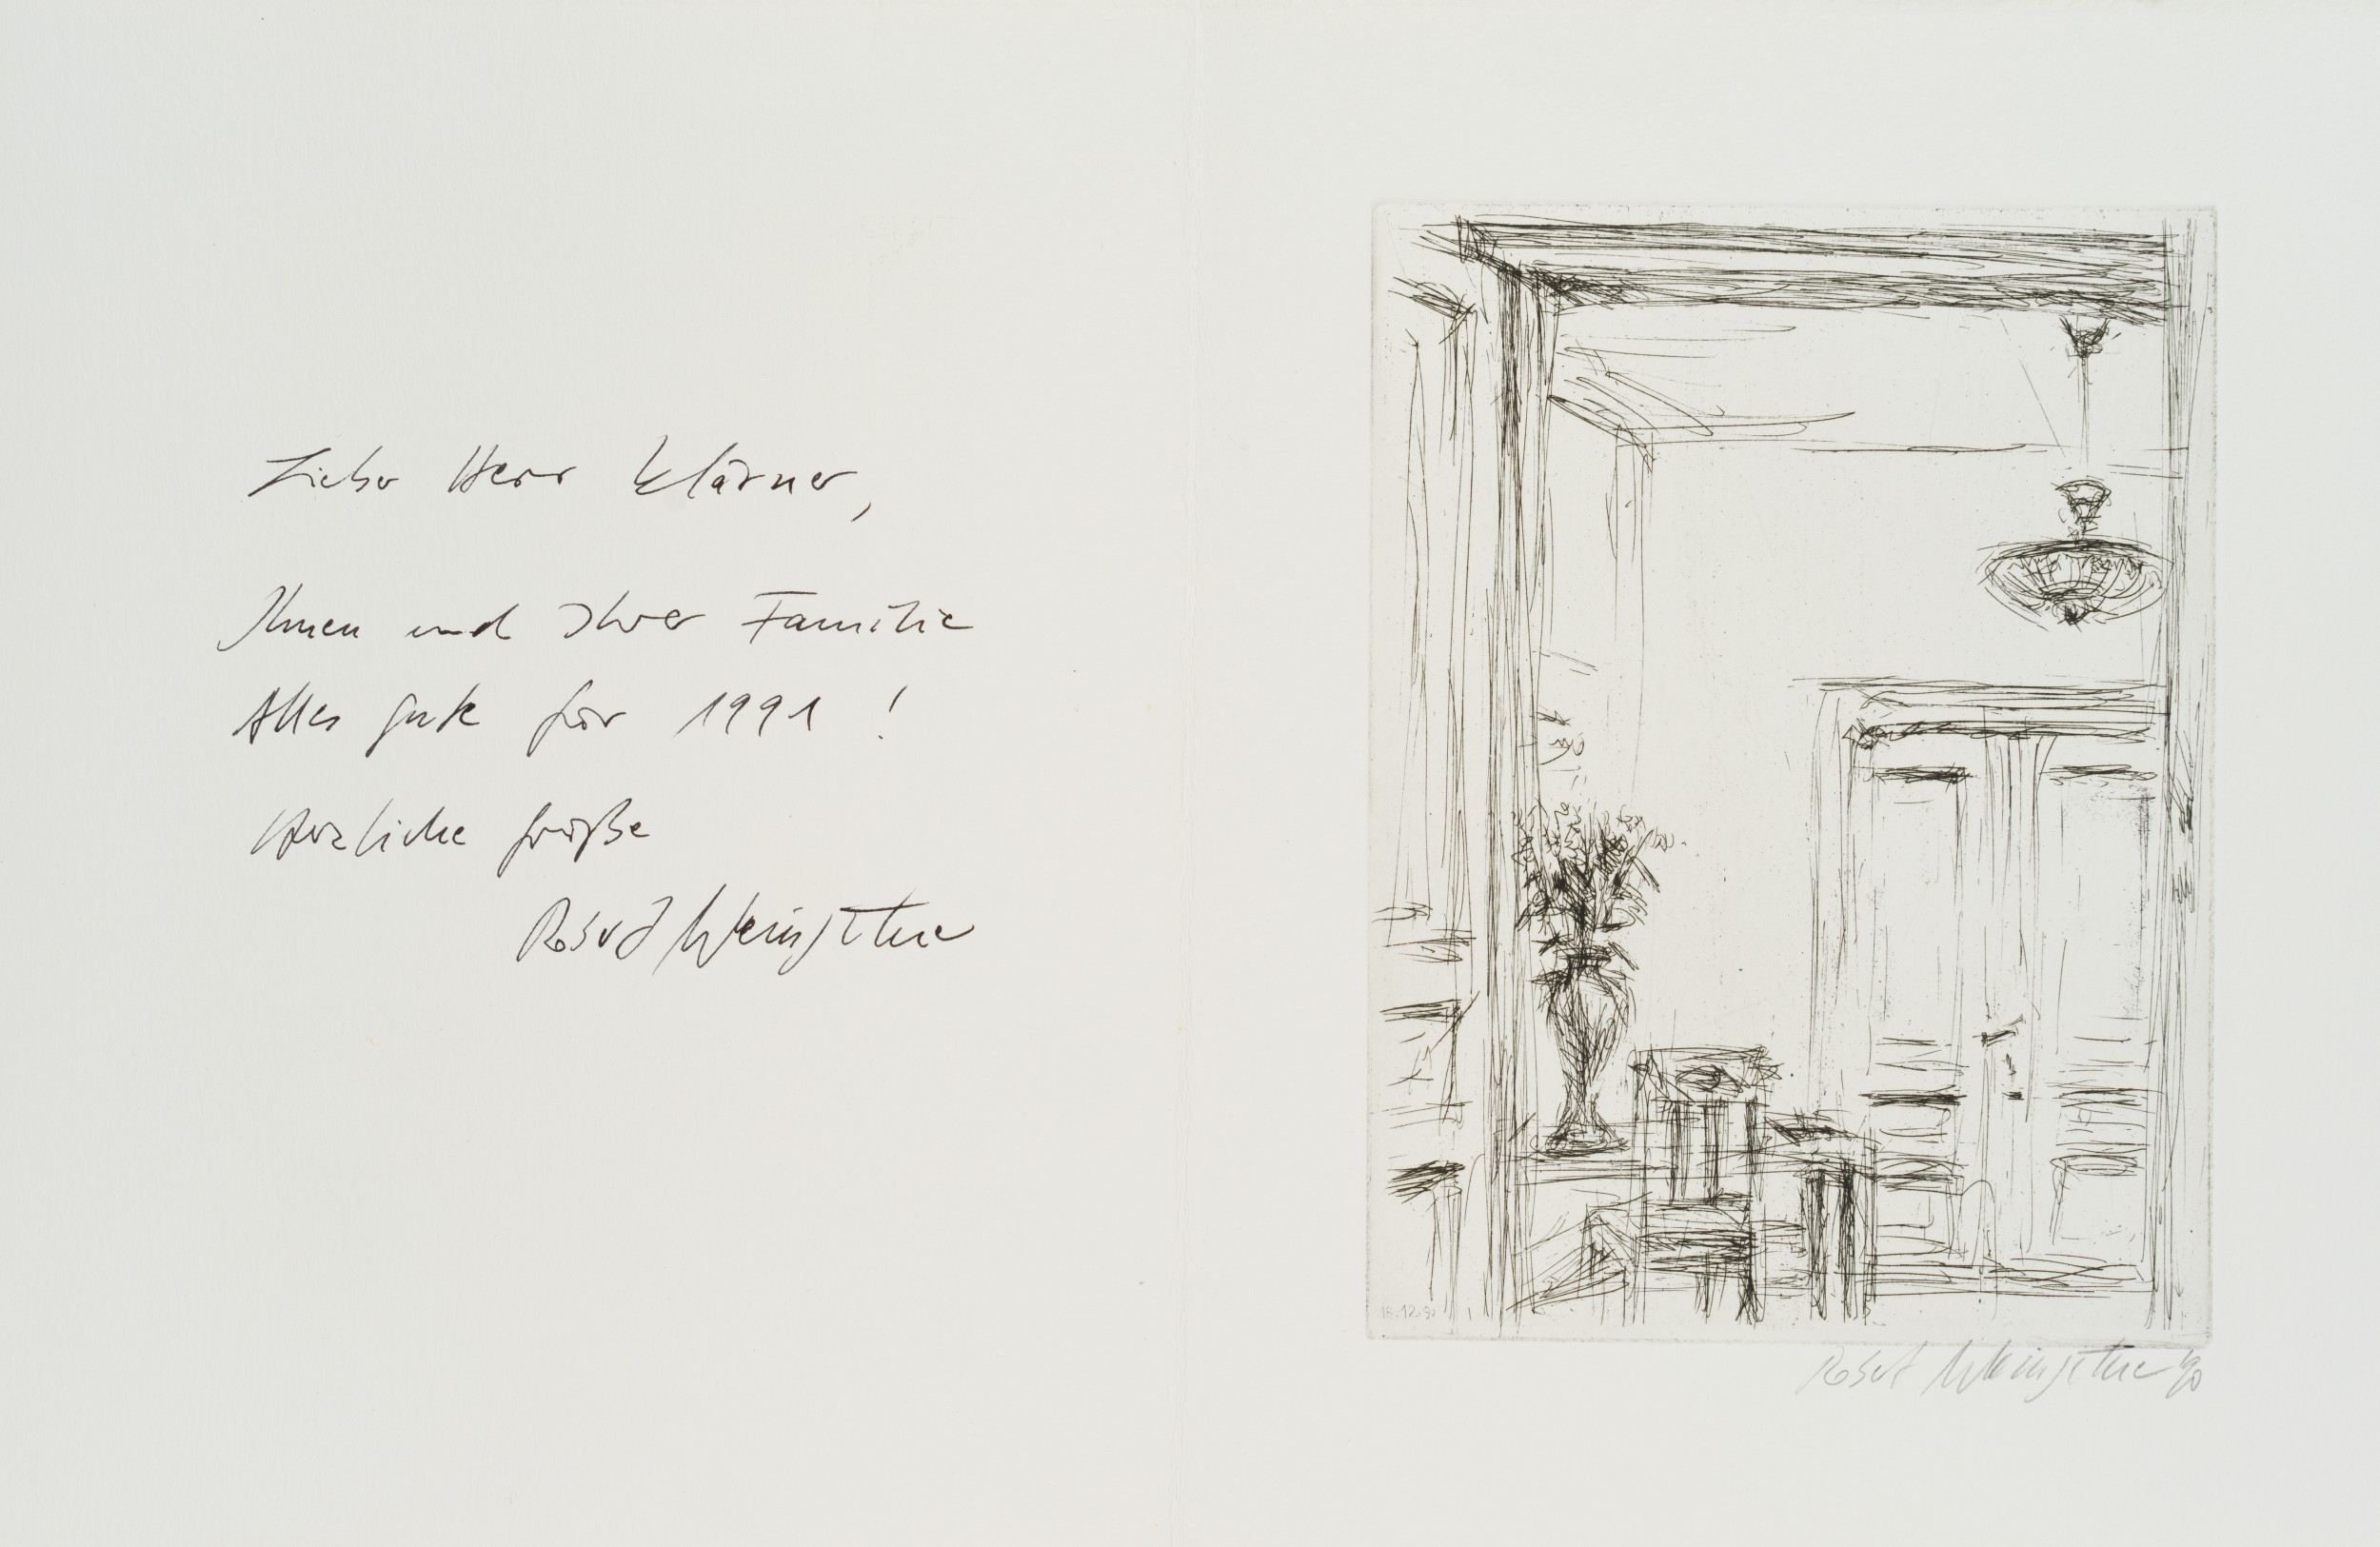 Lieber Herr Klärner,
Ihnen und Ihrer Familie
Alles Gute für 1991 !
Herzliche Grüße
Robert
16.12.90
Robert 90